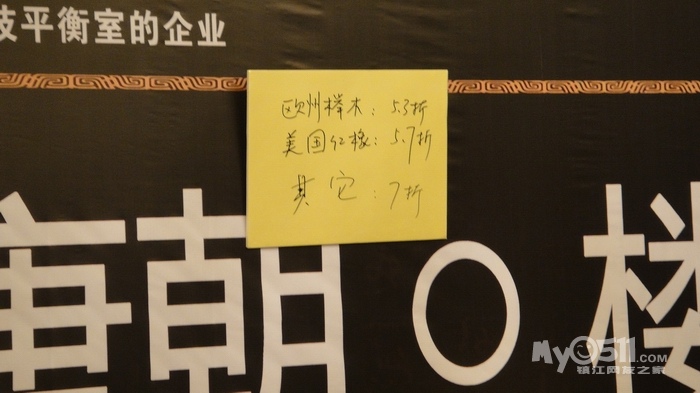 技平衡室的企业
欧州榉木：5.3折
美国红橡：5.7折
其它：7折
唐朝○楼
My0511.com
镇江网友之家